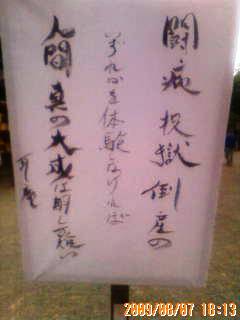 闘病 投獄 倒産の
いづれかを体験しなければ
人間 真の大成は期し難い
耳庵
2009/08/07 18:13